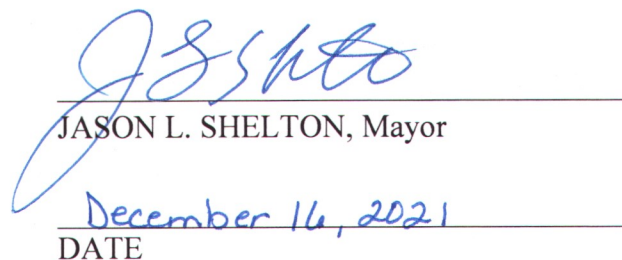 JASON L. SHELTON, Mayor
December 16, 2021
DATE